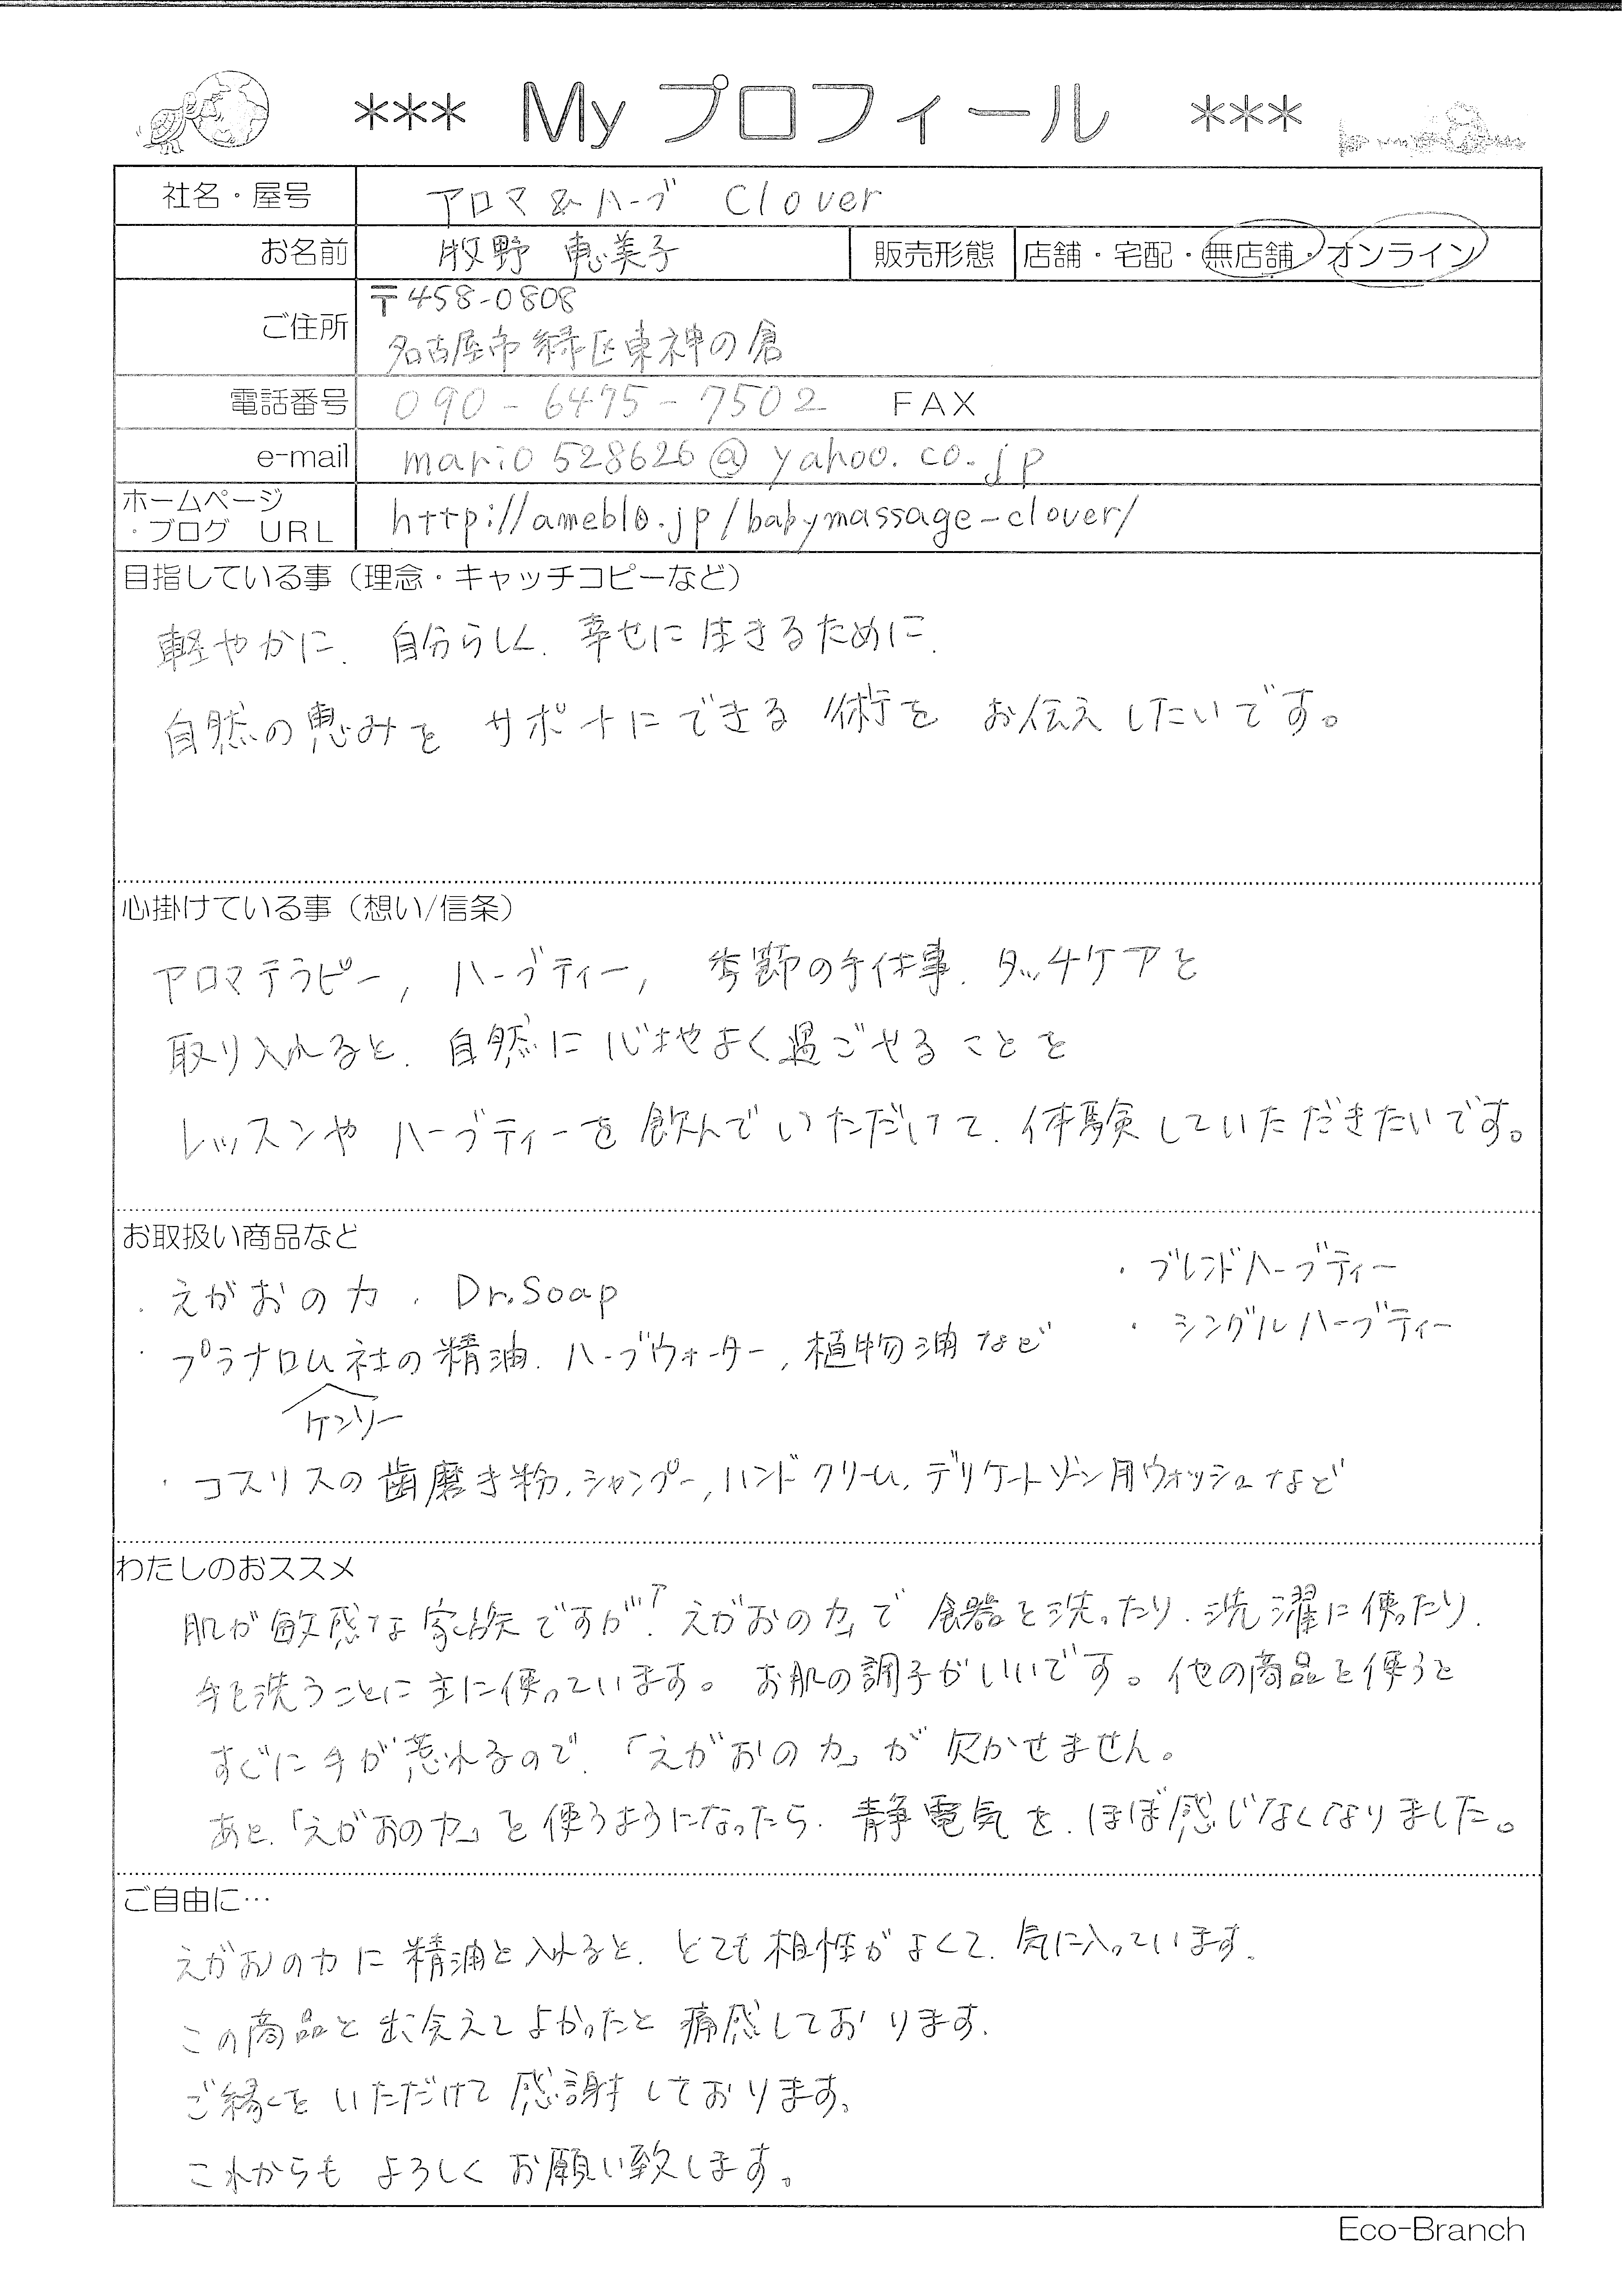 *** My プロフィール ***
社名・屋号 アロマ&ハーブ Clover
お名前 牧野 恵美子 販売形態 店舗・宅配・無店舗・オンライン
ご住所 〒458-0808
名古屋市緑区東神の倉
電話番号 090-6475-7502 FAX
e-mail mario528626@yahoo.co.jp
ホームページ
・ブログ URL http://ameblo.jp/babymassage-clover/
目指している事（理念・キャッチコピーなど）
軽やかに、自分らしく、幸せに生きるために、
自然の恵みを サポートにできる 術を お伝えしたいです。
心掛けている事（想い/信条）
アロマテラピー, ハーブティー, 季節の手仕事、タッチケアを
取り入れると、自然に心地よく過ごせることを
レッスンや ハーブティーを飲んでいただけて、体験していただきたいです。
お取扱い商品など
・えがおの力 、 Dr.Soap
・プラナロム社の精油、ハーブウォーター, 植物油など
ケンソー
・コスリスの歯磨き粉、シャンプー, ハンドクリーム、デリケートゾーン用ウォッシュなど
・ブレンドハーブティー
・シングルハーブティー
わたしのおススメ
肌が敏感な家族ですが、「えがおの力」で 食器を洗ったり、洗濯に使ったり、
手を洗うことに主に使っています。お肌の調子がいいです。他の商品を使うと
すぐに手が荒れるので、「えがおの力」が 欠かせません。
あと、「えがおの力」を使うようになったら、静電気を、ほぼ感じなくなりました。
ご自由に…
えがおの力に精油を入れると、とても相性がよくて、気に入っています。
この商品と出会えてよかったと痛感しております。
ご縁をいただけて感謝しております。
これからも よろしく お願い致します。
Eco-Branch